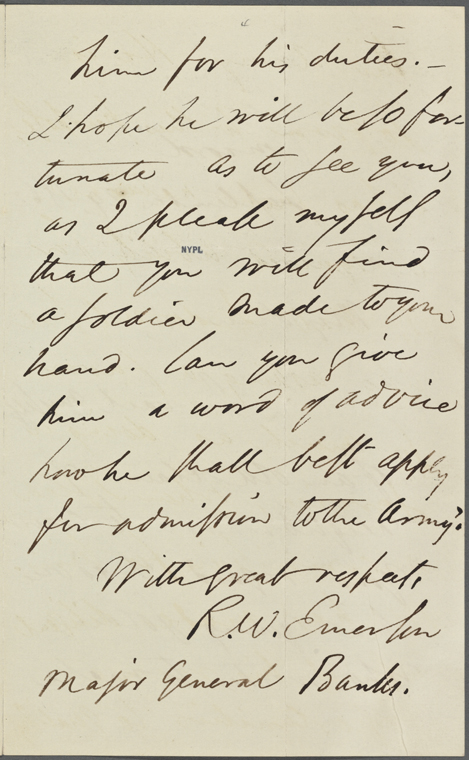 him for his duties.—
I hope he will be so for-
tunate as to see you,
as I please myself
NYPL
that you will find
a soldier made to your
hand. Can you give
him a word of advice
how he shall best apply
for admission to the Army?
With great respect,
R. W. Emerson
Major General Banks.